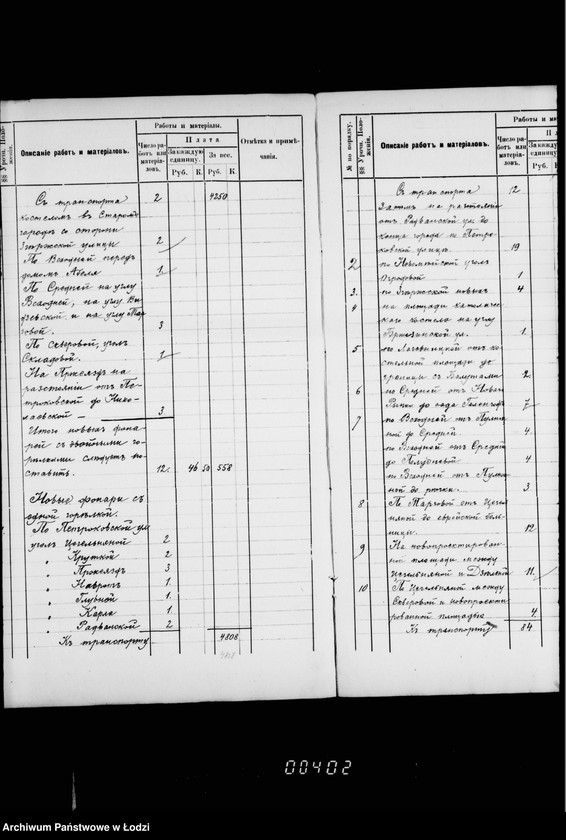 §§ Урочн. Поло-
женія.
Описаніе работъ и матеріаловъ.
Работы и матеріалы.
Число ра-
ботъ или
матеріа-
ловъ.
Плата
За каждую
единицу.
За все.
Руб. К. Руб. К.
Отмѣтка и примѣ-
чанія.
Съ транспорта 2 4250
костеломъ въ Старомъ
городѣ со стороны
Згержской улицы 2
По Всходней передъ
домомъ Абеля 1
По Средней на углу
Всходней, на углу Ви-
дзевской и на углу Тар-
говой. 3
По Скверовой, уголъ
Складовой. 1
На Проездъ на
разстояніи отъ Пе-
троковской до Нико-
лаевской 3
Итого новыхъ фона-
рей съ двойными го-
рѣлками слѣдуетъ по-
ставить. 12 46 50 558
Новые фонари съ
одной горѣлкой.
По Петроковской ул.
уголъ Цегельняной 2
" Круткой 2
" Проездъ 3
" Навротъ 1
" Глувной 1
" Карла 1
" Радванской 2
Къ транспорту 4808
4808
№ по порядку.
§§ Урочн. Поло-
женія.
Описаніе работъ и матеріаловъ.
Число ра-
ботъ или
матеріа-
ловъ.
За каждую
единицу.
Руб. К.
Съ транспорта 12
Затѣмъ на разстояніи
отъ Радванской ул. до
конца города по Петро-
ковской улицѣ 19
2 уголъ
Огродовой 1
3. по Згержской новыхъ 4
4 на площади католичес-
каго костела на углу
Бржезинской ул. 1
5 отъ ко-
стельной площади до
границы съ Балутами 2
6 по Средней отъ Новаго
Рынка до сада 7
7 по Всходней отъ
ной до Средней 4
по Всходней отъ Средней
до Полудневой 4
по Всходней отъ
ной до рѣчки. 3
8 По Тарговой отъ Цегел-
няной до еврейской боль-
ницы. 12
9 На новопроектирован-
ной площади между
Цегельняной и Дзельной 11
10 По Цегельняной между
Скверовой и новопроекти-
рованной площадью 4
Къ транспорту 84
00402
Archiwum Państwowe w Łodzi